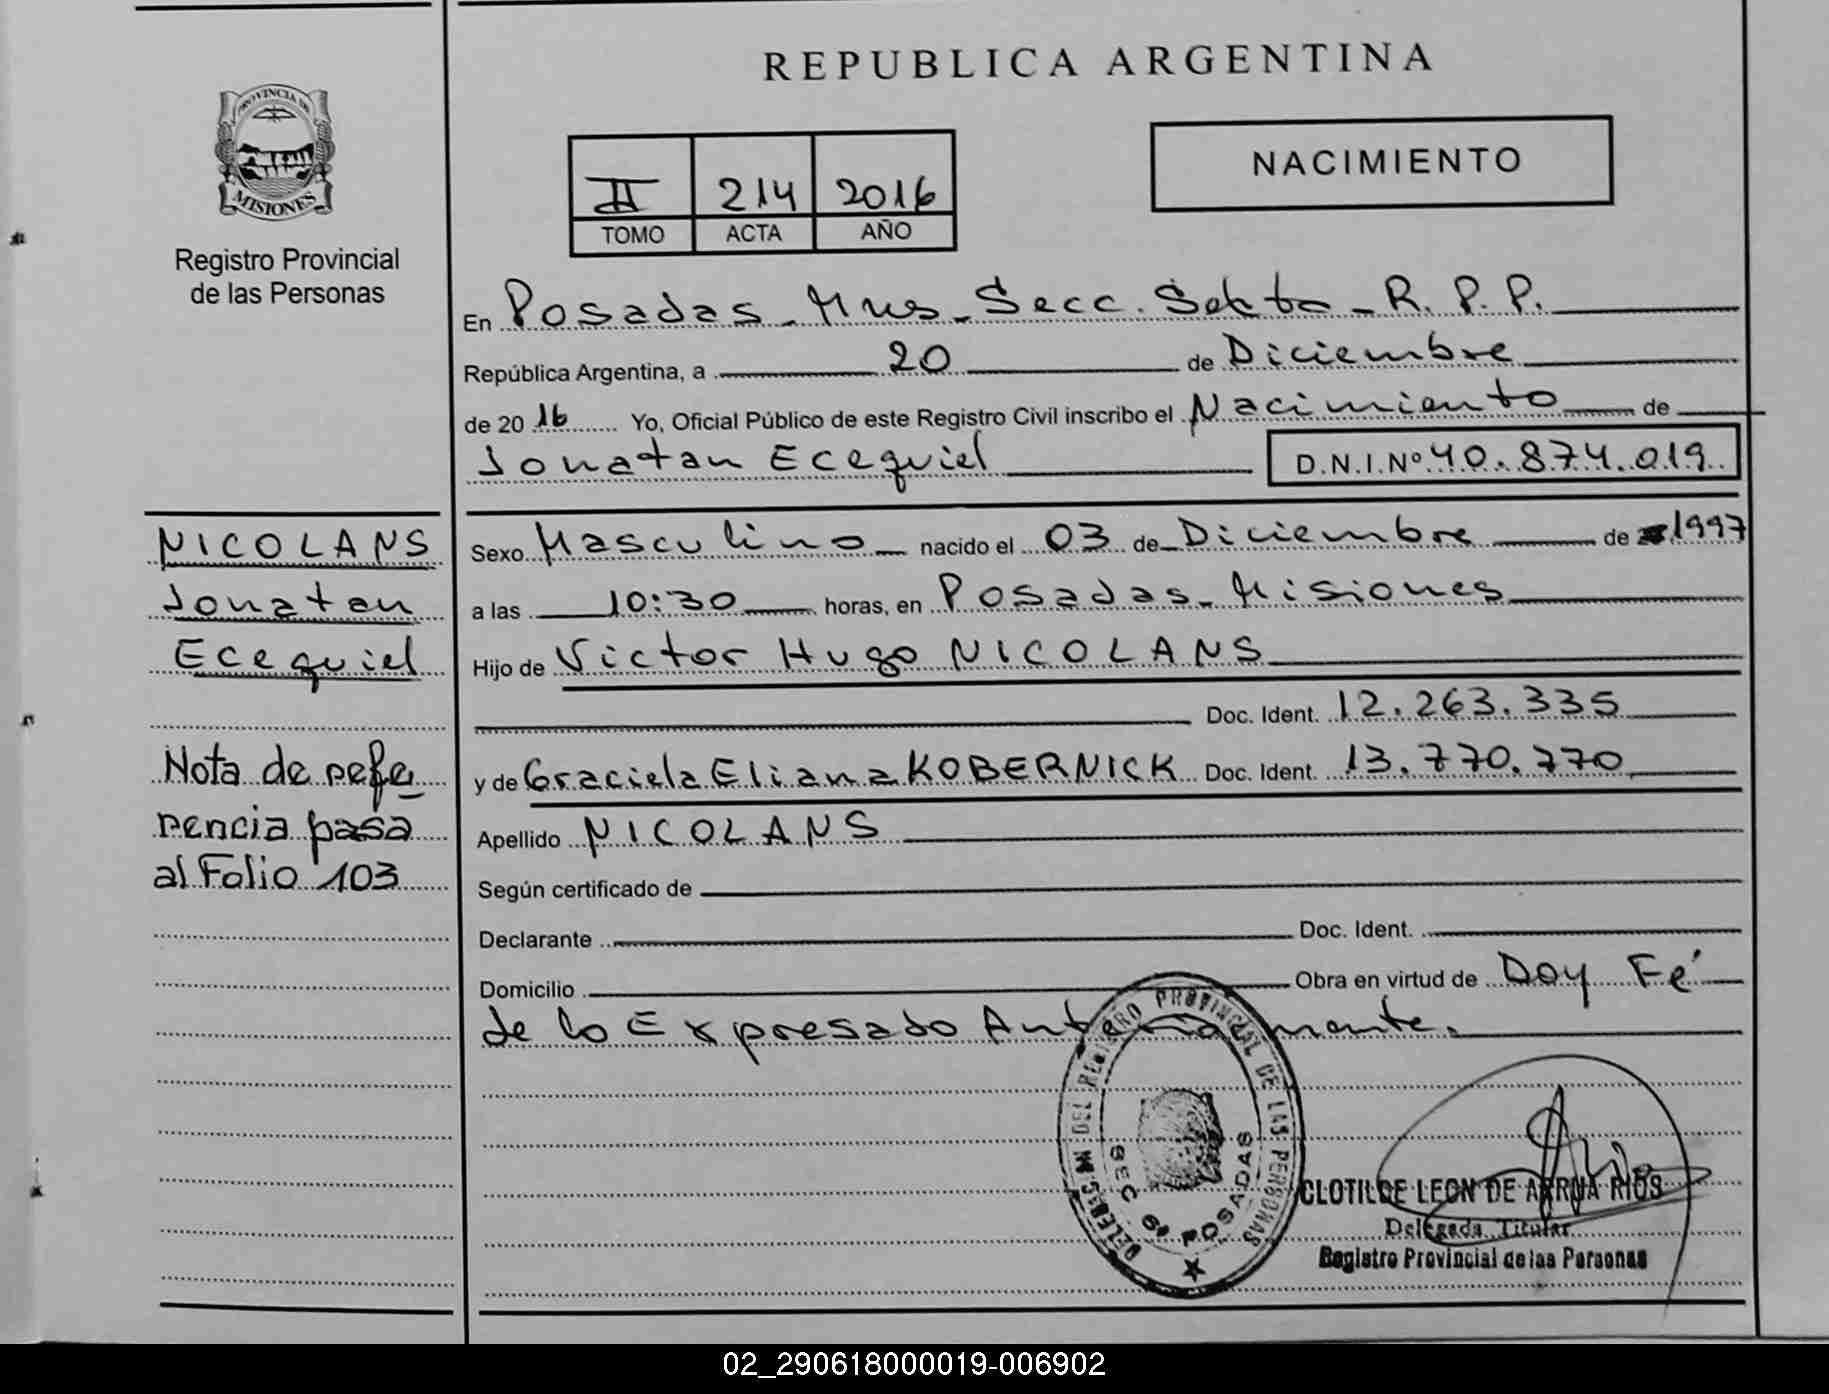 REPUBLICA ARGENTINA
PROVINCIA DE
MISIONES
Registro Provincial
de las Personas
NACIMIENTO
II 214 2016
TOMO ACTA AÑO
En Posadas - Mns - Secc. Sexta - R. P. P.
República Argentina, a 20 de Diciembre
de 2016 Yo, Oficial Público de este Registro Civil inscribo el Nacimiento de
Jonatan Ecequiel D.N.I.Nº 40.874.019
NICOLANS
Jonatan
Ecequiel
Nota de refe
rencia pasa
al Folio 103
Sexo Masculino nacido el 03 de Diciembre de 1997
a las 10:30 horas, en Posadas - Misiones
Hijo de Victor Hugo NICOLANS
Doc. Ident. 12.263.335
y de Graciela Eliana KOBERNICK Doc. Ident. 13.770.770
Apellido NICOLANS
Según certificado de
Declarante Doc. Ident.
Domicilio Obra en virtud de Doy Fé
de lo Expresado Anteriormente.
DELEGACION DEL REGISTRO PROVINCIAL DE LAS PERSONAS
SEC 6ª POSADAS
CLOTILDE LEON DE ARRUA RIOS
Delegada Titular
Registro Provincial de las Personas
02_290618000019-006902